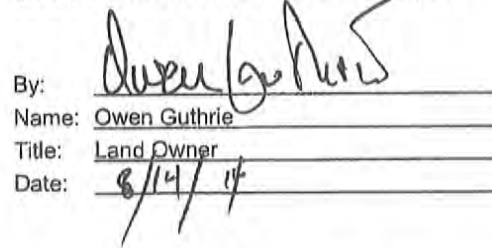 By: Owen Guthrie
Name: Owen Guthrie
Title: Land Owner
Date: 8/14/